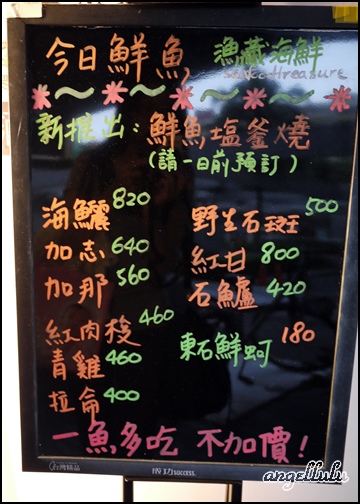 今日鮮魚 漁藏海鮮
seafood treasure
新推出：鮮魚塩釜燒
(請一日前預訂)
海鱺 820
加志 640
加那 560
紅肉梭 460
青雞 460
拉侖 400
野生石斑 500
紅甘 800
石鱸 420
東石鮮蚵 180
一魚多吃 不加價！
成功 success.
angellulu